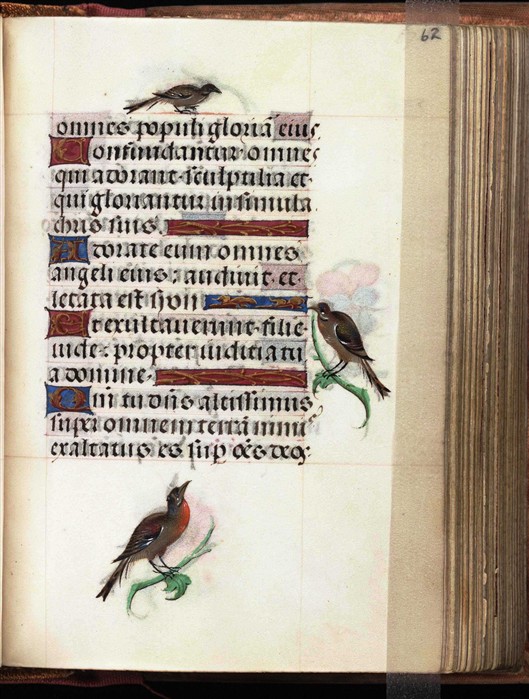 62
omnes populi gloriã eius
Confundantur omnes
qui adorant sculptilia et
qui gloriantur in simula
chris suis.
Adorate eum omnes
angeli eius: audivit et
letata est syon
Et exultaverunt filie
iude: propter iudicia tu
a domine.
Qm̃ tu dñs altissimus
super omnem terrã nimi
exaltatus es sup oẽs deos